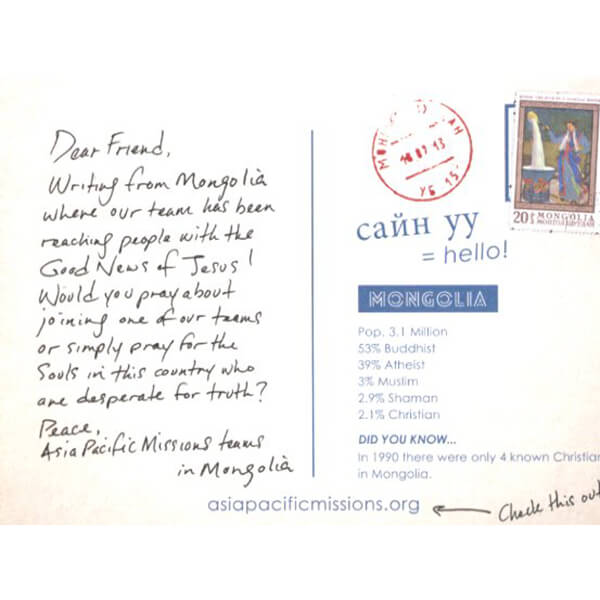 Dear Friend,
Writing from Mongolia
where our team has been
reaching people with the
Good News of Jesus!
Would you pray about
joining one of our teams
or simply pray for the
Souls in this country who
are desperate for truth?
Peace,
Asia Pacific Missions teams
in Mongolia
20
MONGOLIA
сайн уу
= hello!
MONGOLIA
Pop. 3.1 Million
53% Buddhist
39% Atheist
3% Muslim
2.9% Shaman
2.1% Christian
DID YOU KNOW...
In 1990 there were only 4 known Christian
in Mongolia.
asiapacificmissions.org
Check this out